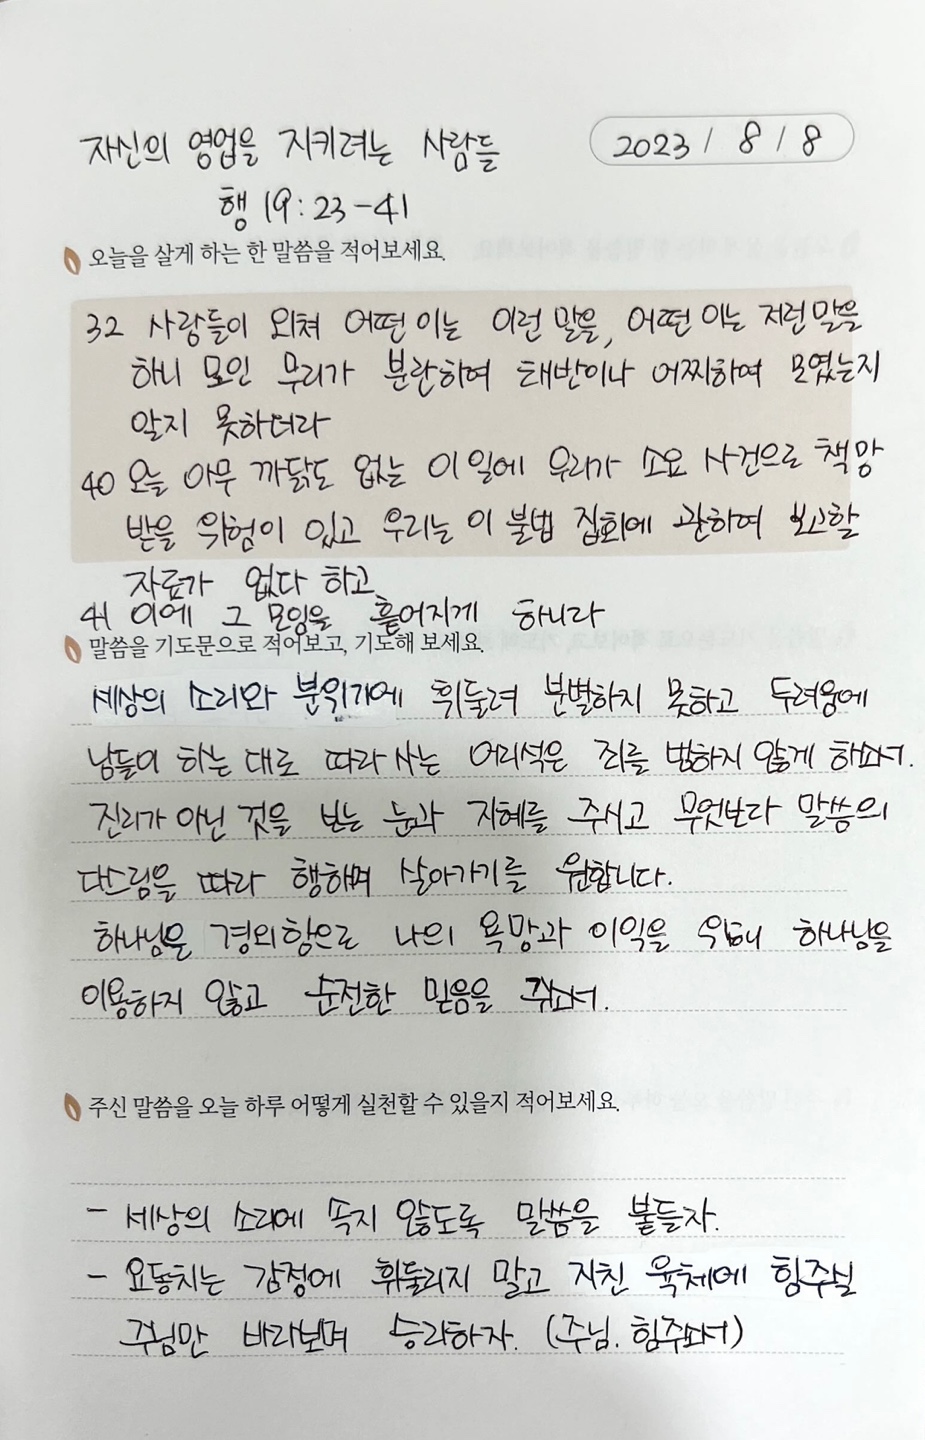 자신의 영업을 지키려는 사람들
2023 / 8 / 8
행 19:23-41
오늘을 살게 하는 한 말씀을 적어보세요.
32 사람들이 외쳐 어떤 이는 이런 말을, 어떤 이는 저런 말을
하니 모인 무리가 분란하여 태반이나 어찌하여 모였는지
알지 못하더라
40 오늘 아무 까닭도 없는 이 일에 우리가 소요 사건으로 책망
받을 위험이 있고 우리는 이 불법 집회에 관하여 보고할
자료가 없다 하고
41 이에 그 모임을 흩어지게 하니라
말씀을 기도문으로 적어보고, 기도해 보세요.
세상의 소리와 분위기에 휘둘려 분별하지 못하고 두려움에
남들이 하는 대로 따라 사는 어리석은 죄를 범하지 않게 하소서.
진리가 아닌 것을 보는 눈과 지혜를 주시고 무엇보다 말씀의
다스림을 따라 행하며 살아가기를 원합니다.
하나님을 경외함으로 나의 욕망과 이익을 위해 하나님을
이용하지 않고 순전한 믿음을 주소서.
주신 말씀을 오늘 하루 어떻게 실천할 수 있을지 적어보세요.
- 세상의 소리에 속지 않도록 말씀을 붙들자.
- 요동치는 감정에 휘둘리지 말고 지친 육체에 힘주실
주님만 바라보며 승리하자. (주님. 힘주소서)